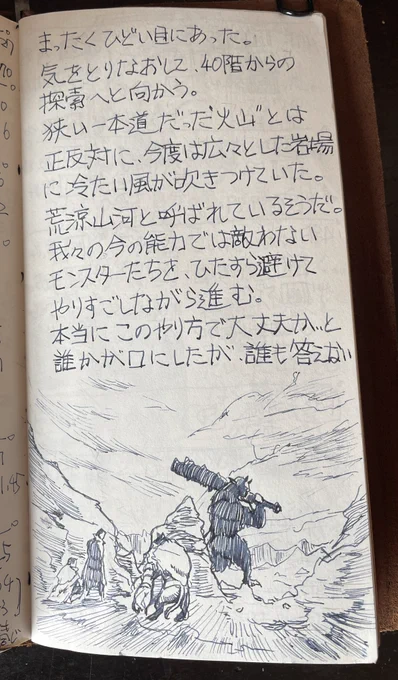 まったくひどい目にあった。
気をとりなおして、40階からの
探索へと向かう。
狭い一本道だった"火山"とは
正反対に、今度は広々とした岩場
に冷たい風が吹きつけていた。
荒涼山河と呼ばれているそうだ。
我々の今の能力では敵わない
モンスターたちを、ひたすら避けて
やりすごしながら進む。
本当にこのやり方で大丈夫か…と
誰かが口にしたが、誰も答えない